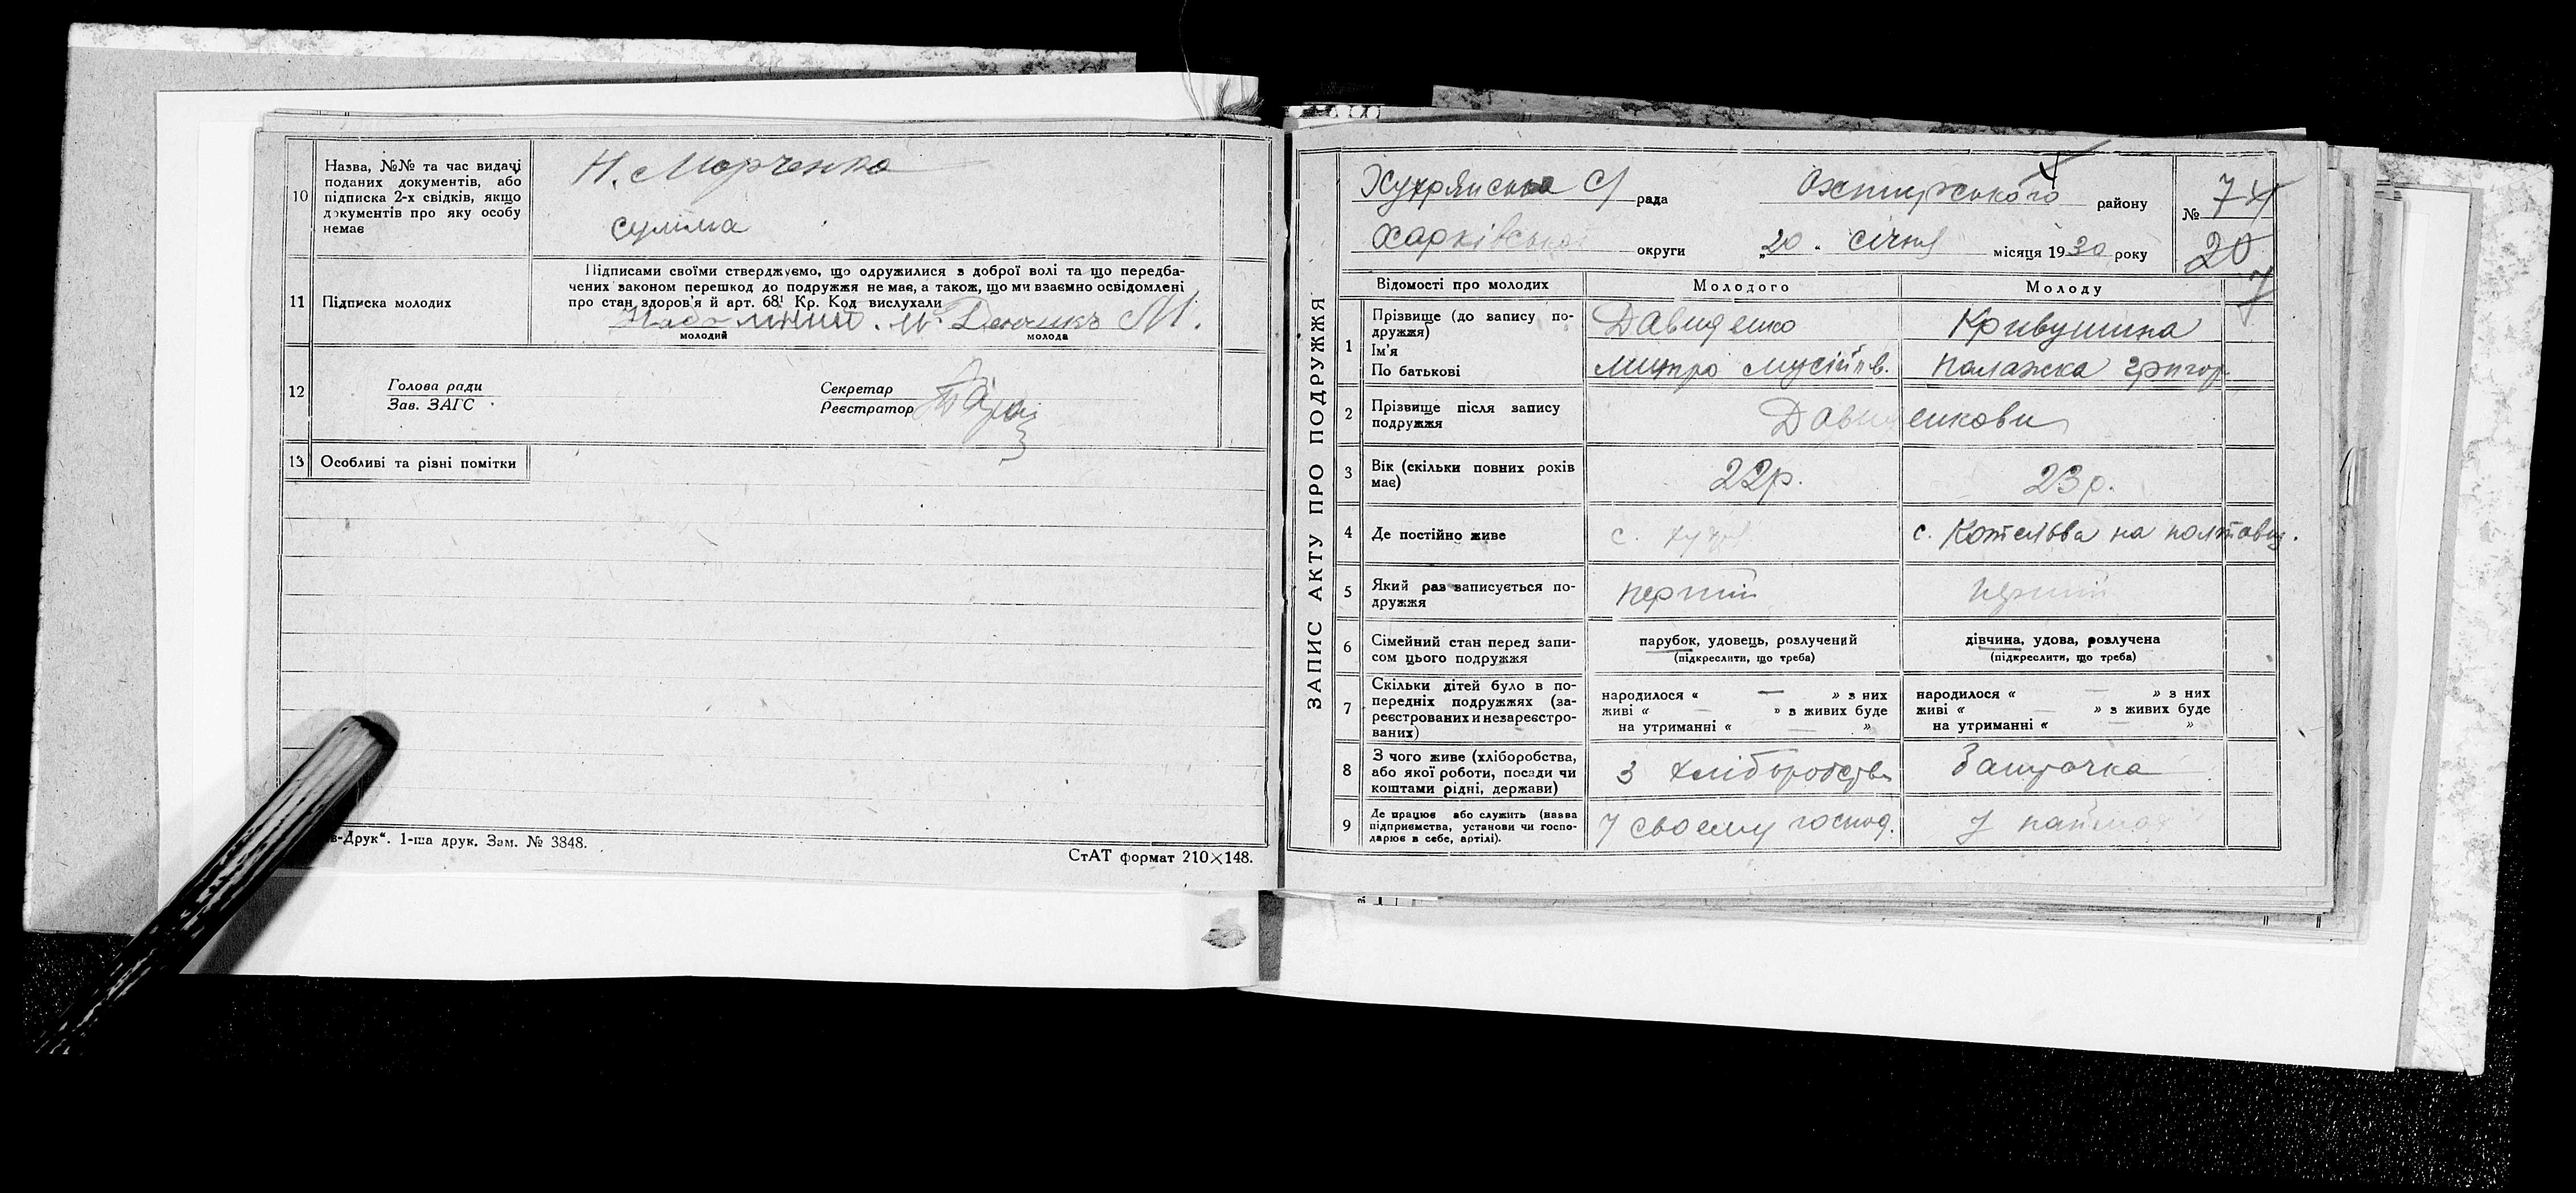 10 Назва, №№ та час видачі
поданих документів, або
підписка 2-х свідків, якщо
документів про яку особу
немає
Н. Марченко
суліма
11 Підписка молодих
Підписами своїми стверджуємо, що одружилися з доброї волі та що передба-
чених законом перешкод до подружжя не має, а також, що ми взаємно освідомлені
про стан здоров'я й арт. 68¹ Кр. Код вислухали
М.
молодий молода
12 Голова ради
Зав. ЗАГС
Секретар
Реєстратор
13 Особливі та різні помітки
в-Друк“. 1-ша друк. Зам. № 3848.
СтАТ формат 210×148.
ЗАПИС АКТУ ПРО ПОДРУЖЖЯ
Хухрянська С/ рада Охтирського району
№ 7
Харківської округи „20. січня місяця 1930 року
20
7
Відомості про молодих Молодого Молоду
1 Прізвище (до запису по-
дружжя)
Ім'я
По батькові
Давиденко
Митро Мусійов.
Кривушина
Палажка Григор.
2 Прізвище після запису
подружжя
Давиденкови
3 Вік (скільки повних років
має)
22р. 23р.
4 Де постійно живе
с. Котельва на полтавщ.
5 Який раз записується по-
дружжя
перший перший
6 Сімейний стан перед запи-
сом цього подружжя
парубок, удовець, розлучений
(підкреслити, що треба)
дівчина, удова, розлучена
(підкреслити, що треба)
7 Скільки дітей було в по-
передніх подружжях (за-
реєстрованих и незареєстро-
ваних)
народилося « — » з них
живі « — » з живих буде
на утриманні « — »
народилося « — » з них
живі « — » з живих буде
на утриманні « — »
8 З чого живе (хліборобства,
або якої роботи, посади чи
коштами рідні, держави)
З хліборобств
9 Де працює або служить (назва
підприємства, установи чи госпо-
дарює в себе, артілі).
У своєму господ.
У наймах